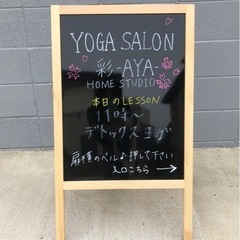 YOGA SALON
彩-AYA
HOME STUDIO
本日のLESSON
11時〜
デトックスヨガ
扉横のベル♪押して下さい
入口こちら →